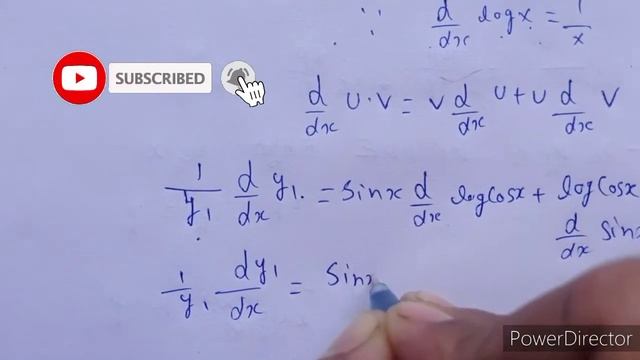 ∵ d/dx logx = 1/x
SUBSCRIBED
d/dx U·V = V d/dx U + U d/dx V
1/y₁ d/dx y₁. = Sinx d/dx logCosx + logCosx
d/dx Sinx
1/y₁ dy₁/dx = Sinx
PowerDirector